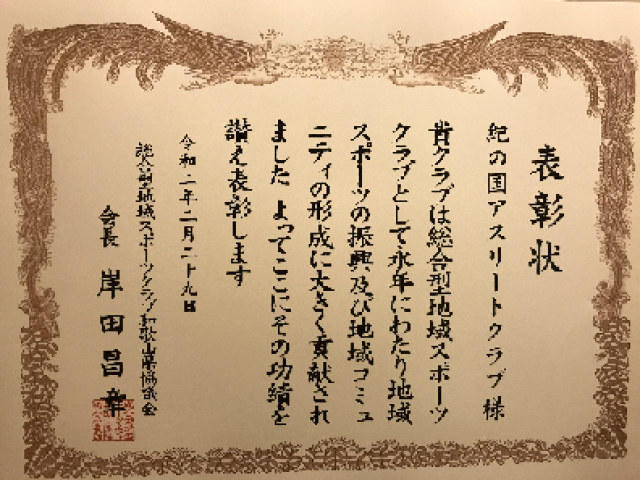 表彰状
紀の国アスリートクラブ様
貴クラブは総合型地域スポーツ
クラブとして永年にわたり地域
スポーツの振興及び地域コミュ
ニティの形成に大きく貢献され
ました よってここにその功績を
讃え表彰します
令和二年二月二十九日
総合型地域スポーツクラブ和歌山県協議会
会長 岸田昌章